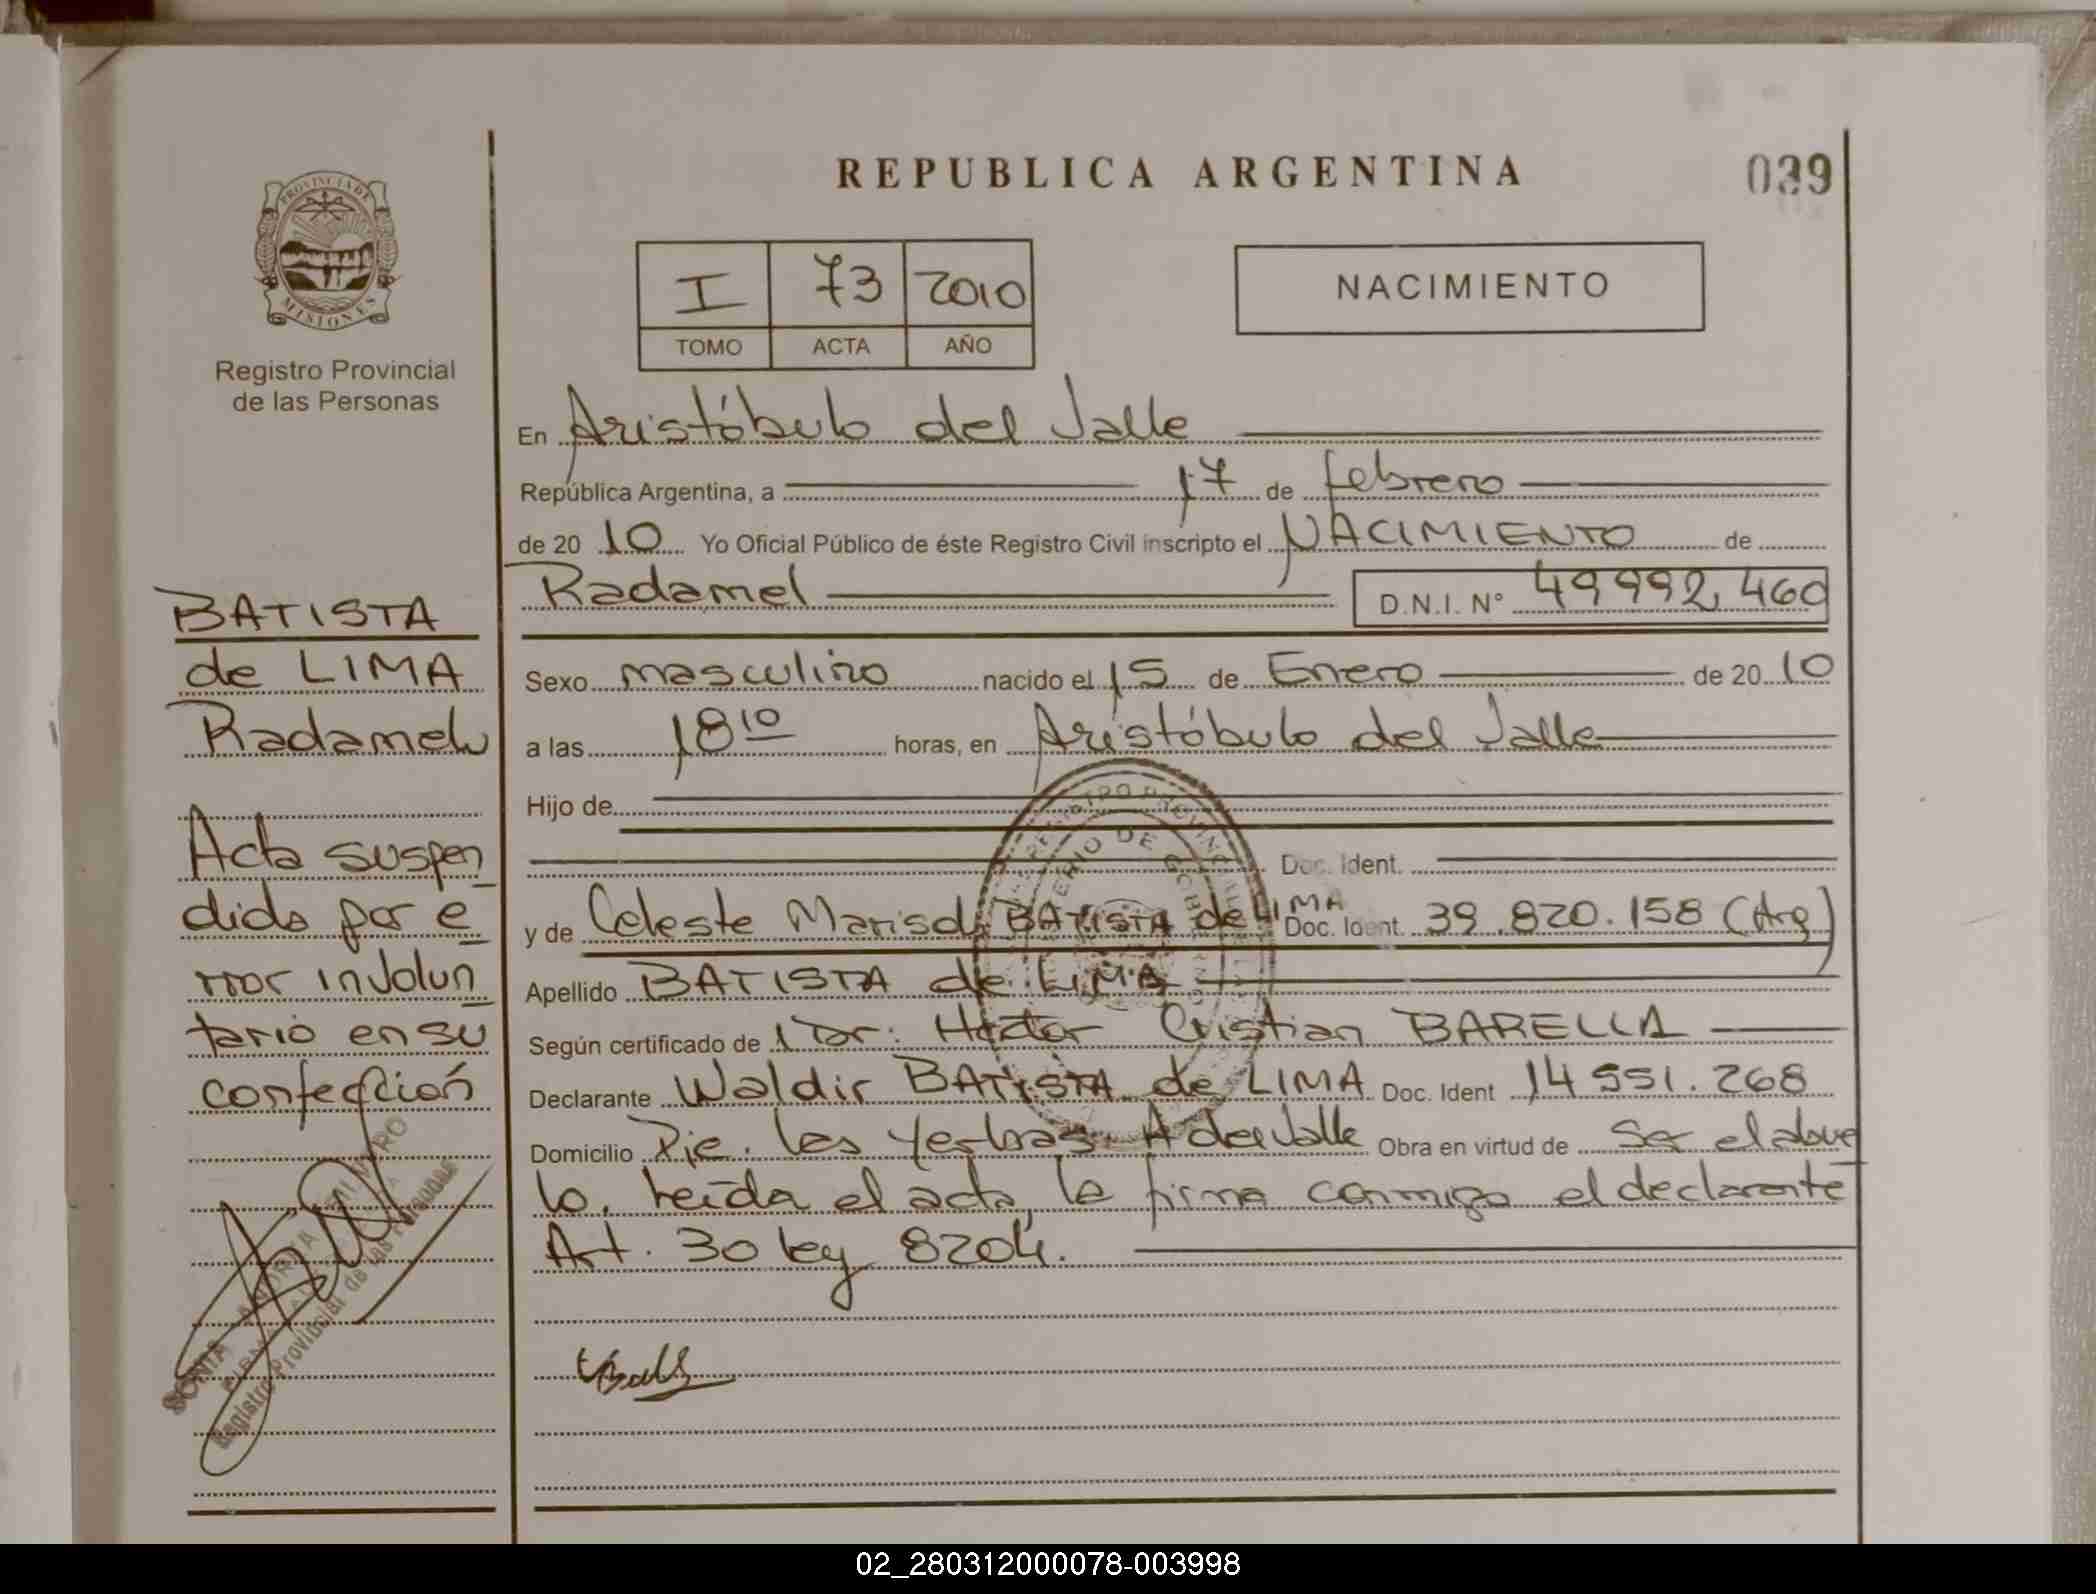 REPUBLICA ARGENTINA
039
PROVINCIA DE
MISIONES
Registro Provincial
de las Personas
I 73 2010
TOMO ACTA AÑO
NACIMIENTO
En Aristóbulo del Valle
República Argentina, a 17 de febrero
de 20 10 Yo Oficial Público de éste Registro Civil inscripto el NACIMIENTO de
Radamel D.N.I. Nº 49992,460
Sexo masculino nacido el 15 de Enero de 20 10
a las 18 10 horas, en Aristóbulo del Valle
Hijo de
Doc. Ident.
y de Celeste Marisol BATISTA de LIMA Doc. Ident. 39.820.158 (Arg)
Apellido BATISTA de LIMA
Según certificado de 1 Dr. Hector Cristian BARELLA
Declarante Waldir BATISTA de LIMA Doc. Ident 14551.268
Domicilio Pje. las Yerbas A del Valle Obra en virtud de Ser el abue
lo. leída el acta, la firma conmigo el declarante
Art. 30 ley 8204.
BATISTA
de LIMA
Radamel
Acta suspen
dida por e
rror involun
tario en su
confección
SONIA ANDREA
Registro Provincial de las Personas
02_280312000078-003998